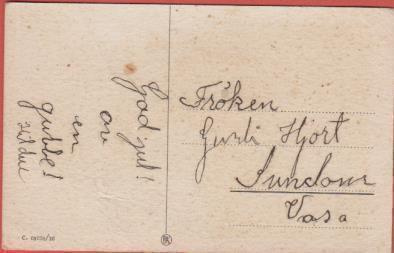 God jul!
av
en
gubbe!
Fröken
Gurli Hjort
Sundom
Vasa